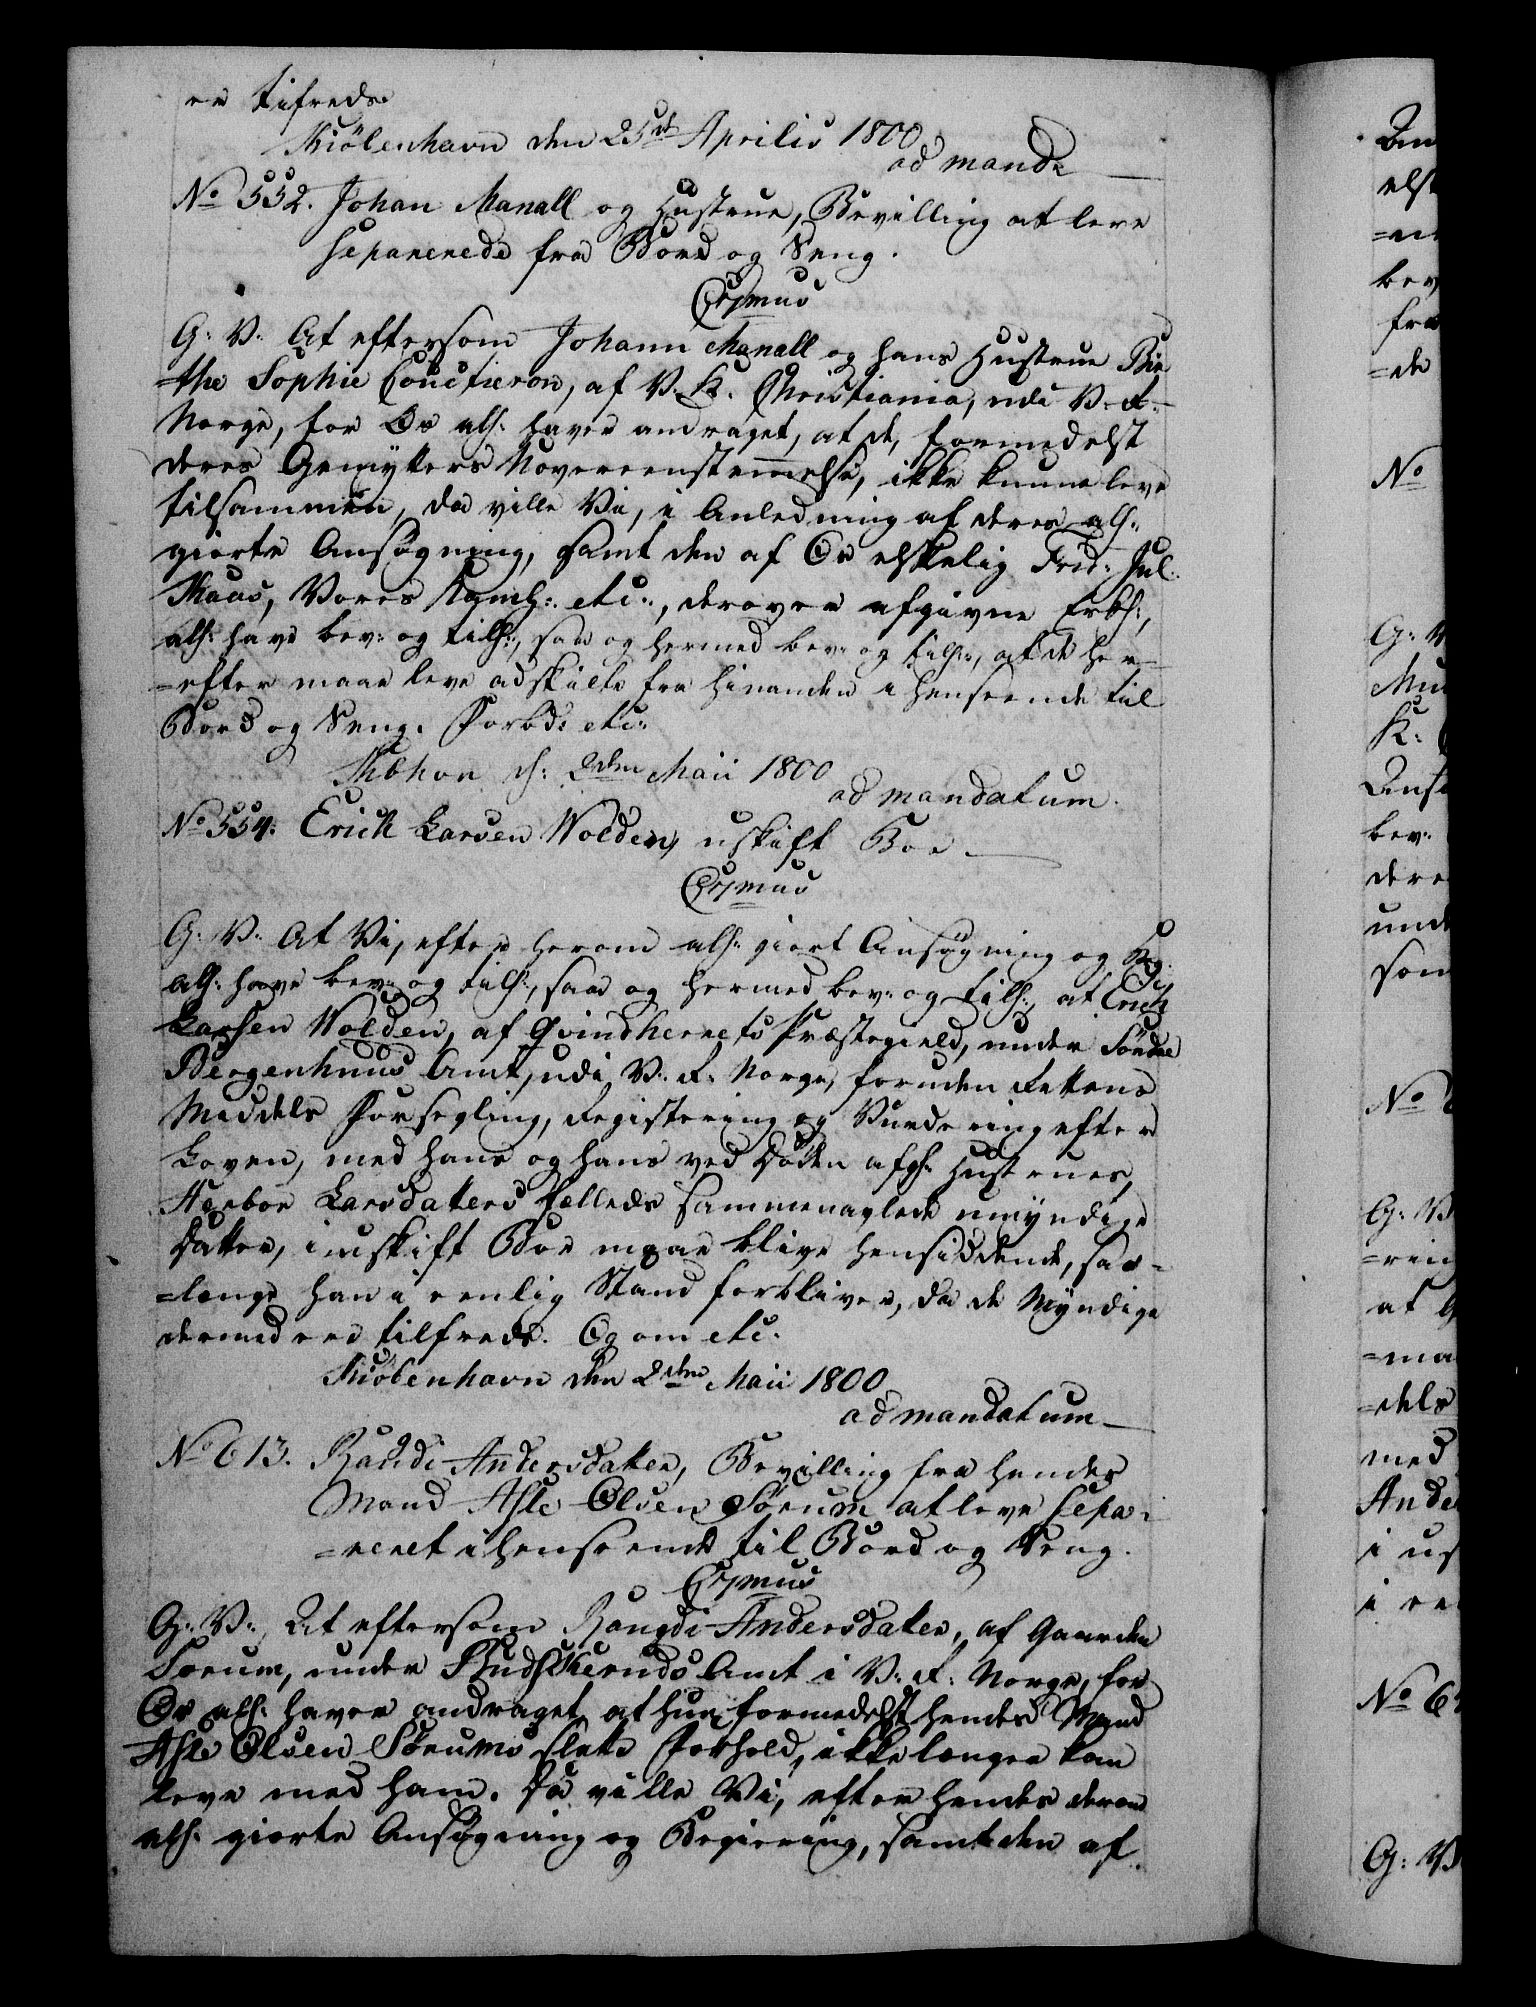 er tilfreds.
Kiöbenhavn den 25de Aprilis 1800
ad mandt
No 552. Johan Manall og Hustrue, Bevilling at leve
separerede fra Bord og Seng.
C 7mus
G: V: At eftersom Johann Manall og hans Hustrue Bir
=the Sophie Couctieron, af V. K. Christiania, udi V: R:
Norge, for Os alh: haver andraget, at de, formedelst
deres Gemytters Uovereenstemmelse, ikke kunne leve
tilsammen, da ville Vi, i Anledning af deres alh:
giorte Ansøgning, samt den af Os elskelig Frid: Jul:
Kaas, Vores Kamh: etc:, derover afgivne Erkl:,
alh: have bev: og tilh:, saa og hermed bev: og tilh:, at de her-
=efter maae leve adskilte fra hinanden i henseende til
Bord og Seng. Forbde etc:
Kbhvn d: 2den Maii 1800
ad mandatum.
No 554. Erich Larsen Wolden, uskift Boe.
C 7mus
G: V: At Vi, efter herom alh: giort Ansøgning og Beg:
alh: have bev: og tilh:, saa og hermed bev: og tilh:, at Erich
Larsen Wolden, af Qvindherrets Præstegield, under Söndre
Bergenhuus Amt, udi V: R: Norge, foruden Rettens
Middels Forsegling, Registering og Vurdering efter
Loven, med hans og hans ved Døden afg: Hustrues,
Herbor Larsdatters fælleds sammenavlede umyndige
Datter, i uskift Boe maae blive hensiddende, saa=
=længe han i eenlig Stand forbliver, da de Myndige
dermed ere tilfreds. Og om etc:
Kiöbenhavn den 2den Maii 1800
ad mandatum
No 613. Randi Andersdatter, Bevilling fra hendes
Mand Asle Olsen Sörum at leve sepa=
=reret i henseende til Bord og Seng.
C 7mus
G: V:, At eftersom Rangdi Andersdatter, af Gaarden
Sorum, under Budskeruds Amt i V: R: Norge, for
Os alh: haver andraget, at hun formedelst hendes Mand
Asle Olsen Sörums slette Forhold, ikke længer kan
leve med ham. Da ville Vi, efter hendes derom
alh: giorte Ansøgning og Begiering, samt den af
No
G: V
K:
bev:
dere
und
som
No
G: V
=ring
at
=ma
=dels
med
Ande
i us
i ee
No 6
G: V